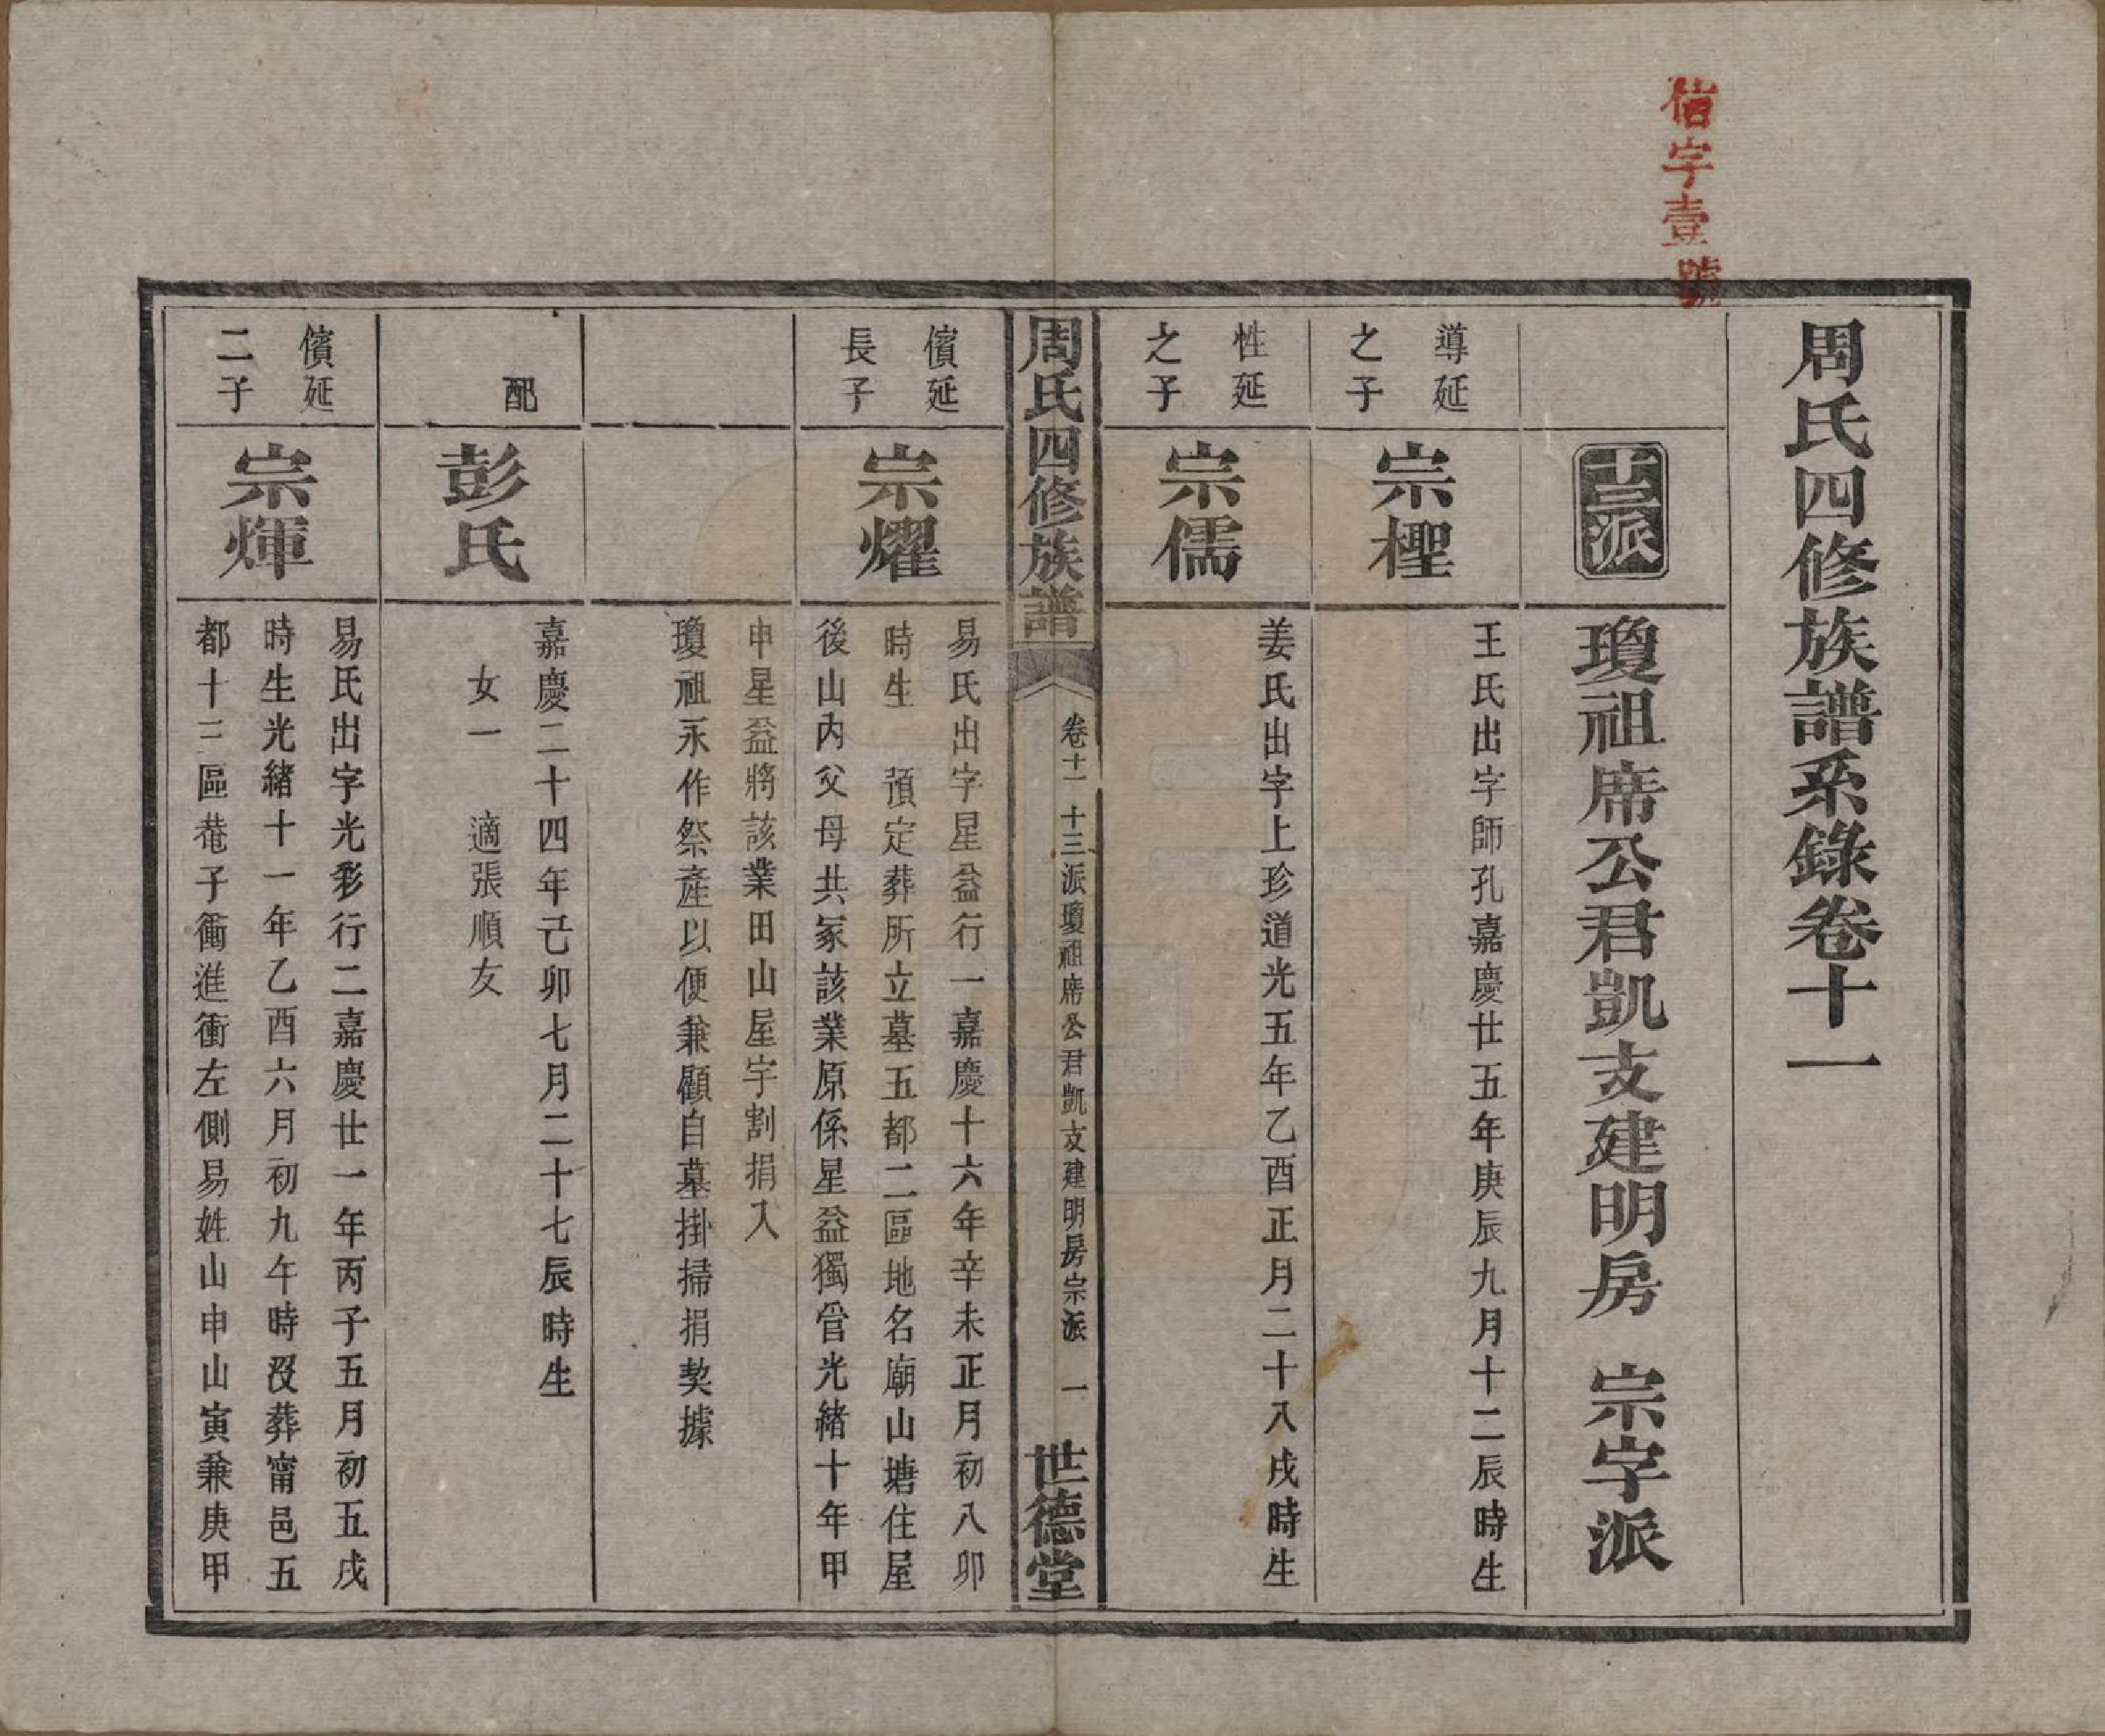 信字壹號
周氏四修族譜系錄卷十一
十三派
瓊祖席公君凱支建明房 宗字派
導延
之子
宗檉
王氏出字師孔嘉慶廿五年庚辰九月十二辰時生
性延
之子
宗儒
姜氏出字上珍道光五年乙酉正月二十八戌時生
周氏四修族譜
卷十一 十三派瓊祖席公君凱支建明房宗派 一
世德堂
儐延
長子
宗耀
易氏出字星益行一嘉慶十六年辛未正月初八卯
時生 預定葬所立墓五都二區地名廟山塘住屋
後山內父母共冢該業原係星益獨管光緒十年甲
申星益將該業田山屋宇割捐入
瓊祖永作祭產以便兼顧自墓掛掃捐契據
配
彭氏
嘉慶二十四年己卯七月二十七辰時生
女一 適張順友
儐延
二子
宗煇
易氏出字光彩行二嘉慶廿一年丙子五月初五戌
時生光緒十一年乙酉六月初九午時歿葬甯邑五
都十三區菴子衝進衝左側易姓山申山寅兼庚甲